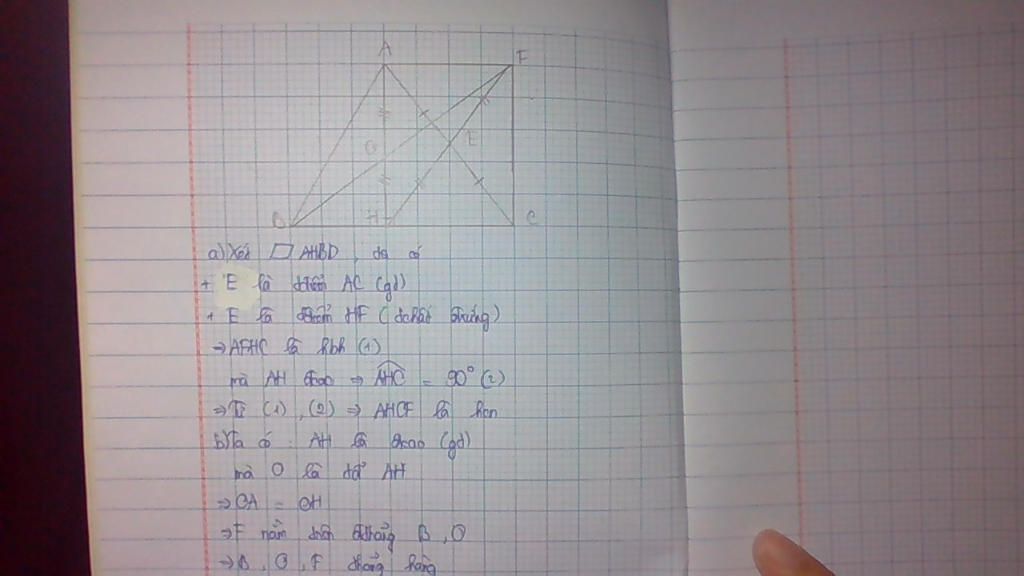 A F
O E
B H C
a) Xét ▱ AHBD, ta có
+ E là đ AC (gt)
+ E là HF (
⇒ AFHC là hbh (1)
mà AH đcao ⇒ AHC = 90° (2)
⇒ Từ (1), (2) ⇒ AHCF là hcn
b) Ta có: AH là đcao (gt)
mà O là AH
⇒ OA = OH
⇒ F nằm trên B, O
⇒ B, O, F thẳng hàng